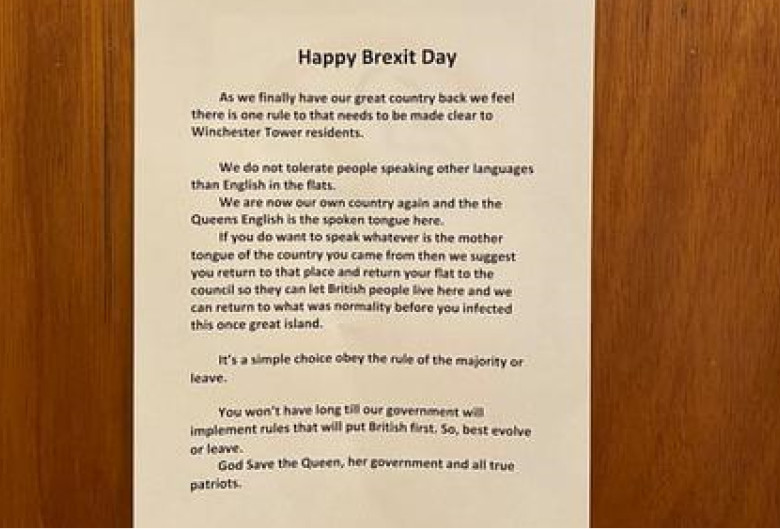 Happy Brexit Day
As we finally have our great country back we feel
there is one rule to that needs to be made clear to
Winchester Tower residents.
We do not tolerate people speaking other languages
than English in the flats.
We are now our own country again and the the
Queens English is the spoken tongue here.
If you do want to speak whatever is the mother
tongue of the country you came from then we suggest
you return to that place and return your flat to the
council so they can let British people live here and we
can return to what was normality before you infected
this once great island.
It's a simple choice obey the rule of the majority or
leave.
You won't have long till our government will
implement rules that will put British first. So, best evolve
or leave.
God Save the Queen, her government and all true
patriots.